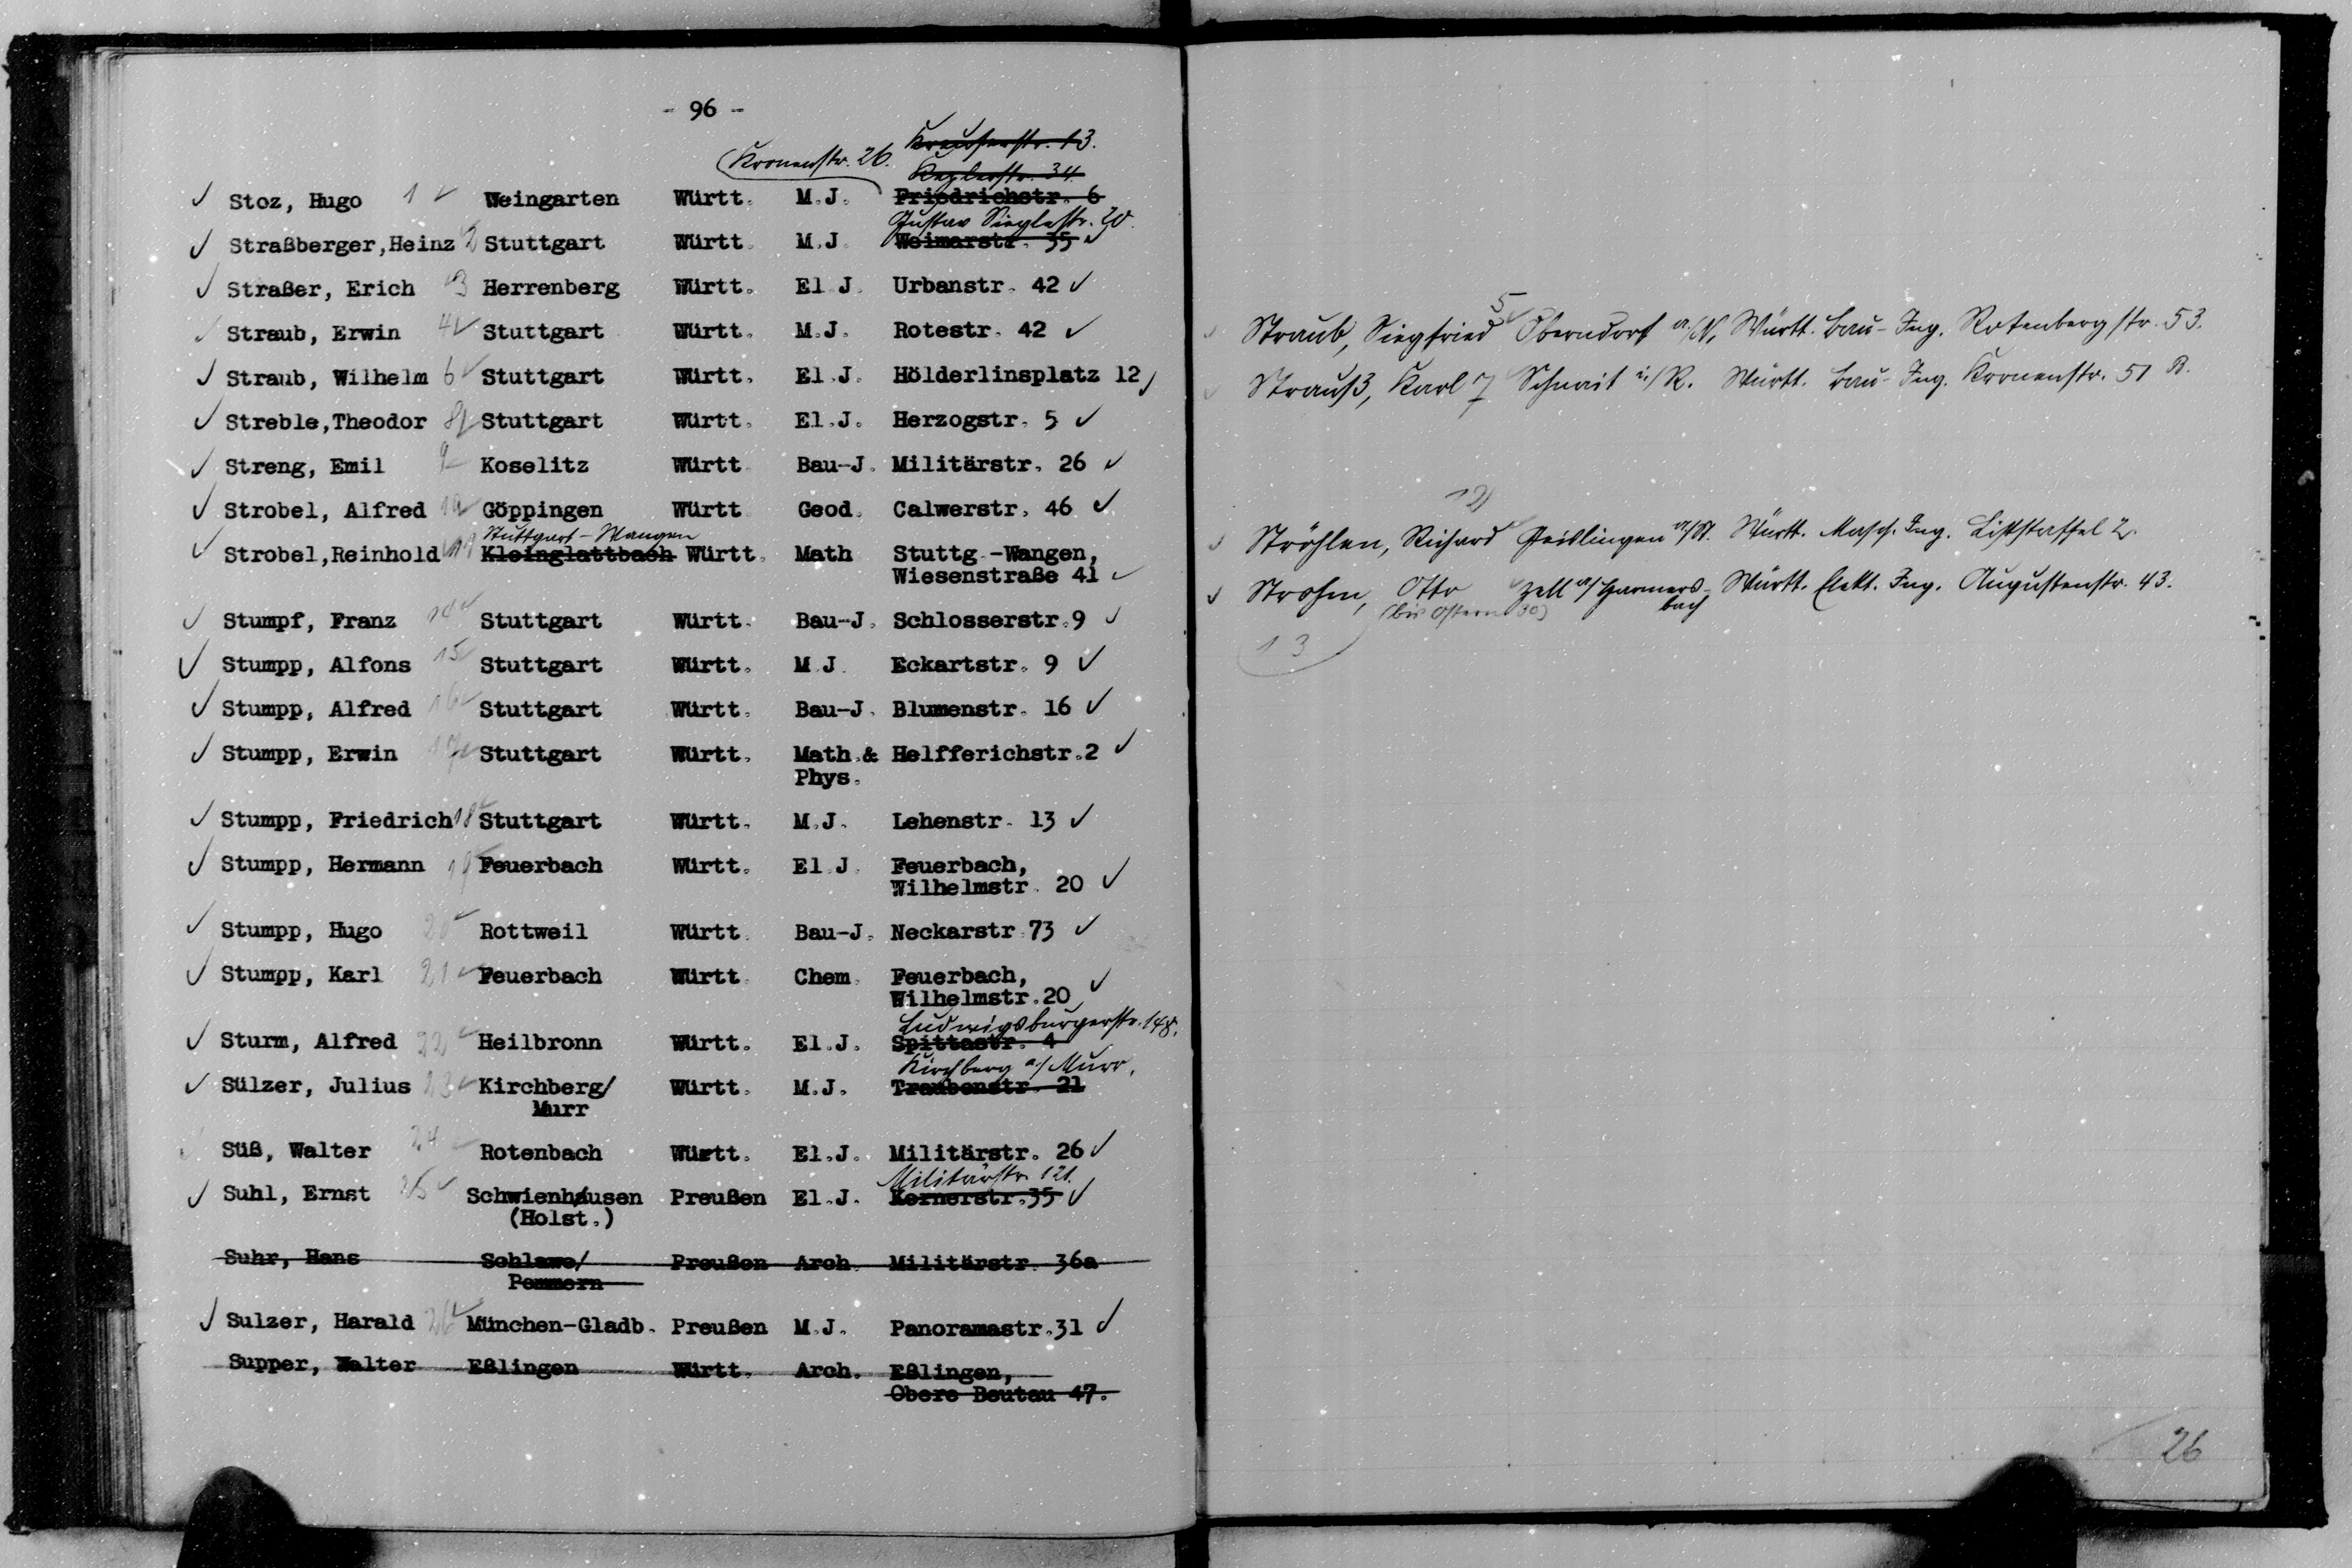 - 96 -
Kronenstr. 26.
Keplerstr. 34.
✓ Stoz, Hugo 1 ✓ Weingarten Württ. M.J. Friedrichstr. 6
Gustav Sieglestr. 20.
✓ Straßberger,Heinz 2 Stuttgart Württ. M.J. Weimarstr. 35 ✓
✓ Straßer, Erich 3 Herrenberg Württ. El.J. Urbanstr. 42 ✓
✓ Straub, Erwin 4 ✓ Stuttgart Württ. M.J. Rotestr. 42 ✓
✓ Straub, Wilhelm 6 ✓ Stuttgart Württ. El.J. Hölderlinsplatz 12
✓ Streble,Theodor 8 Stuttgart Württ. El.J. Herzogstr. 5 ✓
✓ Streng, Emil 9 Koselitz Württ Bau-J. Militärstr. 26 ✓
✓ Strobel, Alfred 10 Göppingen Württ Geod. Calwerstr. 46 ✓
Stuttgart-Wangen
✓ Strobel,Reinhold 11 Kleinglattbach Württ. Math Stuttg.-Wangen,
Wiesenstraße 41 ✓
✓ Stumpf, Franz 14 ✓ Stuttgart Württ. Bau-J. Schlosserstr.9 ✓
✓ Stumpp, Alfons 15 Stuttgart Württ. M.J. Eckartstr. 9 ✓
✓ Stumpp, Alfred 16 ✓ Stuttgart Württ. Bau-J. Blumenstr. 16 ✓
✓ Stumpp, Erwin 17 Stuttgart Württ. Math.& Helfferichstr.2 ✓
Phys.
✓ Stumpp, Friedrich 18 ✓ Stuttgart Württ. M.J. Lehenstr. 13 ✓
✓ Stumpp, Hermann 19 Feuerbach Württ. El.J. Feuerbach,
Wilhelmstr. 20 ✓
✓ Stumpp, Hugo 20 ✓ Rottweil Württ. Bau-J. Neckarstr.73 ✓
✓ Stumpp, Karl 21 ✓ Feuerbach Württ. Chem. Feuerbach, ✓
Wilhelmstr.20
Ludwigsburgerstr. 148.
✓ Sturm, Alfred 22 ✓ Heilbronn Württ. El.J. Spittastr. 4
Kirchberg a/Murr.
✓ Sülzer, Julius 23 ✓ Kirchberg/ Württ. M.J. Traubenstr. 21
Murr
Süß, Walter 24 ✓ Rotenbach Württ. El.J. Militärstr. 26 ✓
Militärstr. 121.
✓ Suhl, Ernst 25 ✓ Schwienhusen Preußen El.J. Kernerstr.35 ✓
(Holst.)
Suhr, Hans Schlawe/ Preußen Arch. Militärstr. 36a
Pommern
✓ Sulzer, Harald 26 ✓ München-Gladb. Preußen M.J. Panoramastr.31 ✓
Supper, Walter Eßlingen Württ. Arch. Eßlingen,
Obere Beutau 47.
✓ Straub, Siegfried 5 ✓ Oberndorf a/N. Württ. Bau-Ing. Rotenbergstr. 53.
✓ Strauß, Karl 7 Schnait i/R. Württ. Bau-Ing. Kronenstr. 51 B.
12
✓ Ströhlen, Richard ✓ Geislingen a/St. Württ. Masch. Ing. Liststaffel 2.
✓ Strohm, Otto ✓ Zell a/Harmers- Württ. Elekt. Ing. Augustenstr. 43.
(bis Ostern 30) bach
13
26